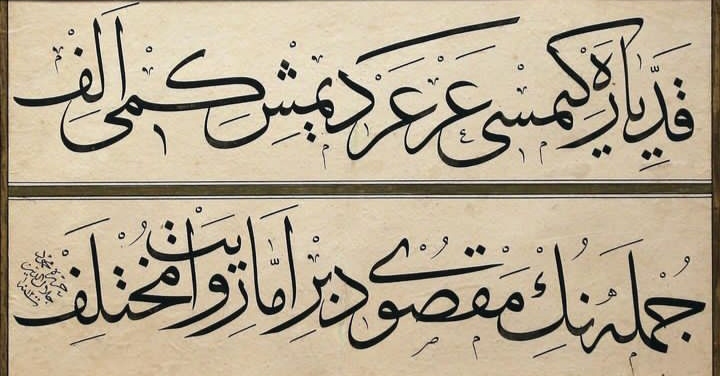 قدِّ ياره كيمسى عَرعَر ديمش كيمى اَلِف
جُمله نُكْ مَقصُودى بر اَمّا رِوايت مُختَلِف